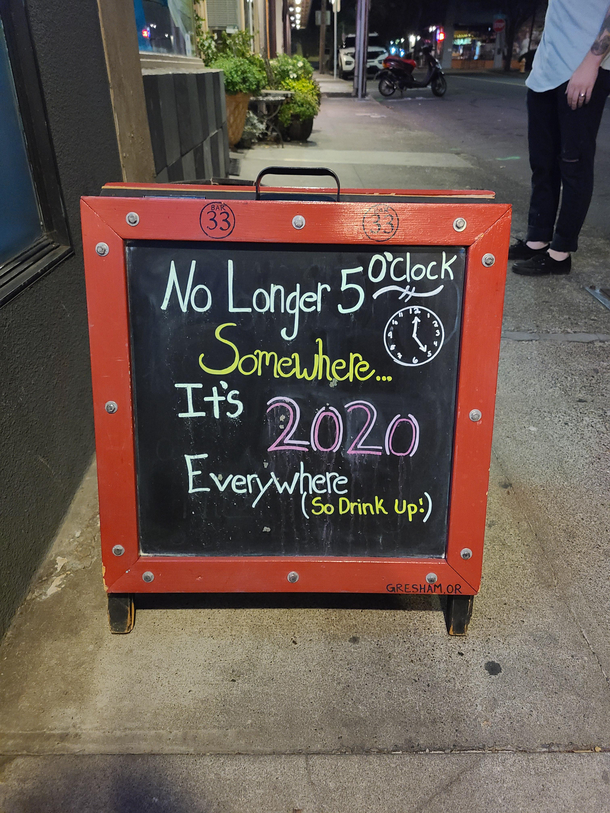 BAR 33
BAR 33
No Longer 5 O'Clock
12 3 4 5 6 8 9
Somewhere...
It's 2020
Everywhere
(So Drink Up!)
GRESHAM, OR